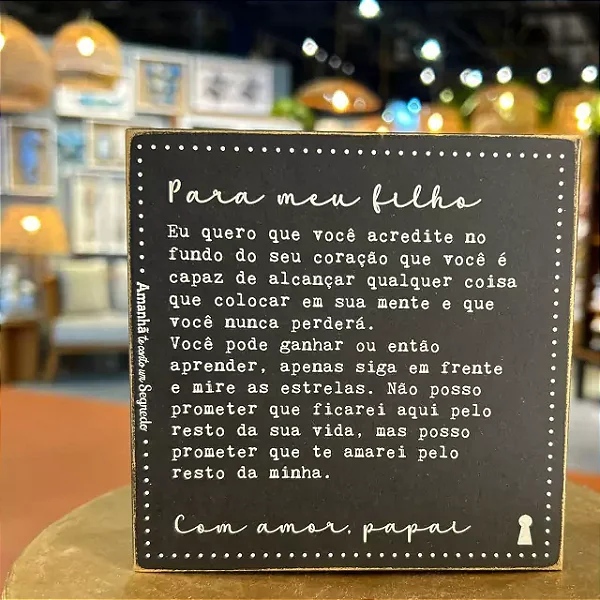 Para meu filho
Eu quero que você acredite no
fundo do seu coração que você é
capaz de alcançar qualquer coisa
que colocar em sua mente e que
você nunca perderá.
Você pode ganhar ou então
aprender, apenas siga em frente
e mire as estrelas. Não posso
prometer que ficarei aqui pelo
resto da sua vida, mas posso
prometer que te amarei pelo
resto da minha.
Com amor, papai
Amanhã te conto um Segredo